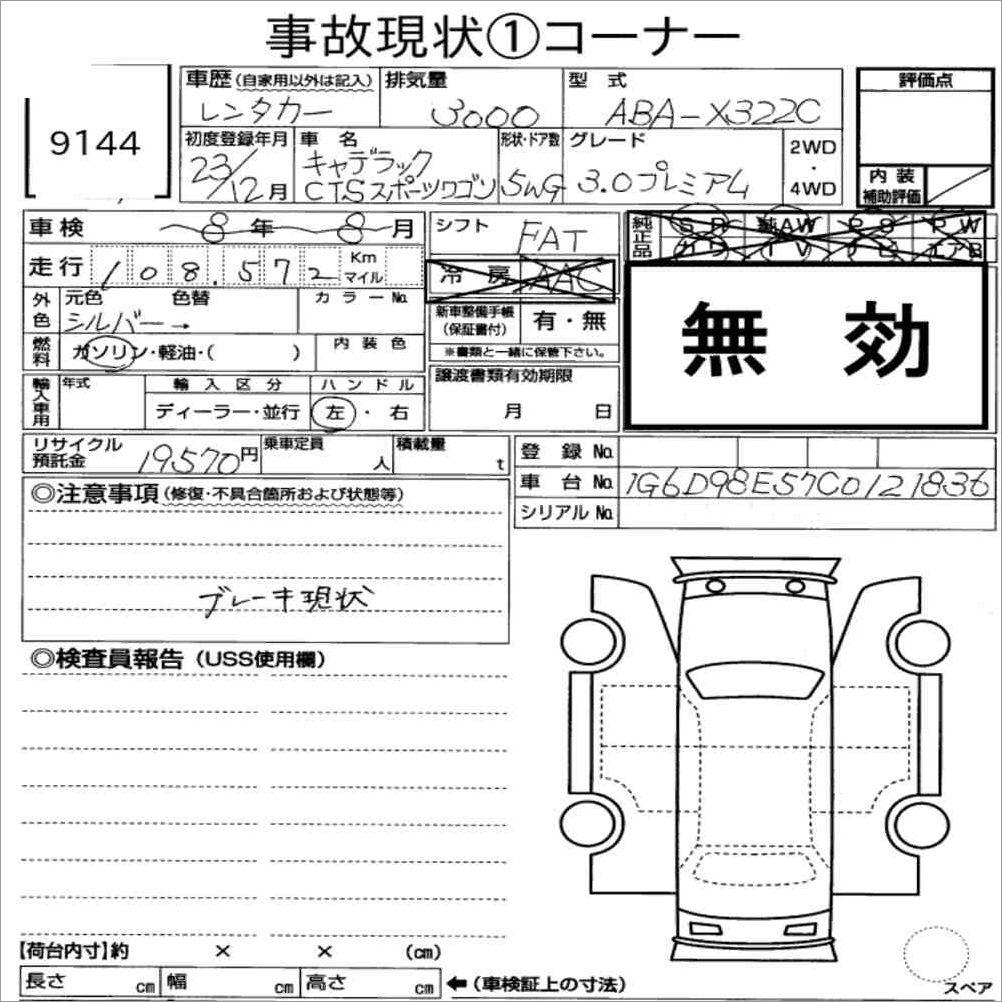 事故現状①コーナー
9144
車歴(自家用以外は記入) 排気量 型式 評価点
レンタカー 3000 ABA-X322C
初度登録年月 車名 形状・ドア数 グレード 2WD
23/12月 キャデラック CTSスポーツワゴン 5WG 3.0プレミアム ・ 4WD
内装補助評価
車検 8年 8月 シフト FAT
純正品 SR 純AW PS PW
カワ TV ナビ エアB
走行 108.572 Km マイル
冷房 AAC
外色 元色 色替 カラーNo.
シルバー→
新車整備手帳(保証書付) 有・無
※書類と一緒に保管下さい。
無効
燃料 ガソリン・軽油・( ) 内装色
輸入車用 年式 輸入区分 ハンドル
ディーラー・並行 左・右
譲渡書類有効期限
月 日
リサイクル預託金 19570円 乗車定員 人 積載量 t
登録No.
車台No. 1G6D98E57C0121836
シリアルNo.
◎注意事項(修復・不具合箇所および状態等)
ブレーキ現状
◎検査員報告(USS使用欄)
【荷台内寸】約 × × (cm)
長さ cm 幅 cm 高さ cm ←(車検証上の寸法)
スペア